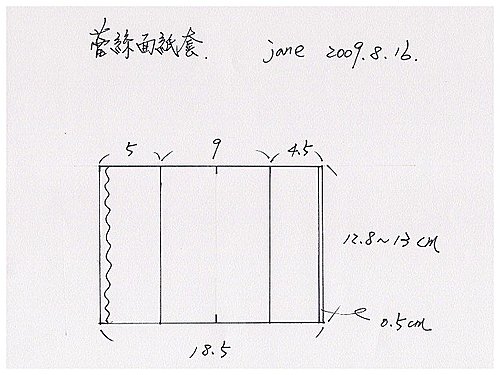 蕾絲面紙套. jane 2009.8.16.
5 9 4.5
12.8~13 cm
0.5cm
18.5